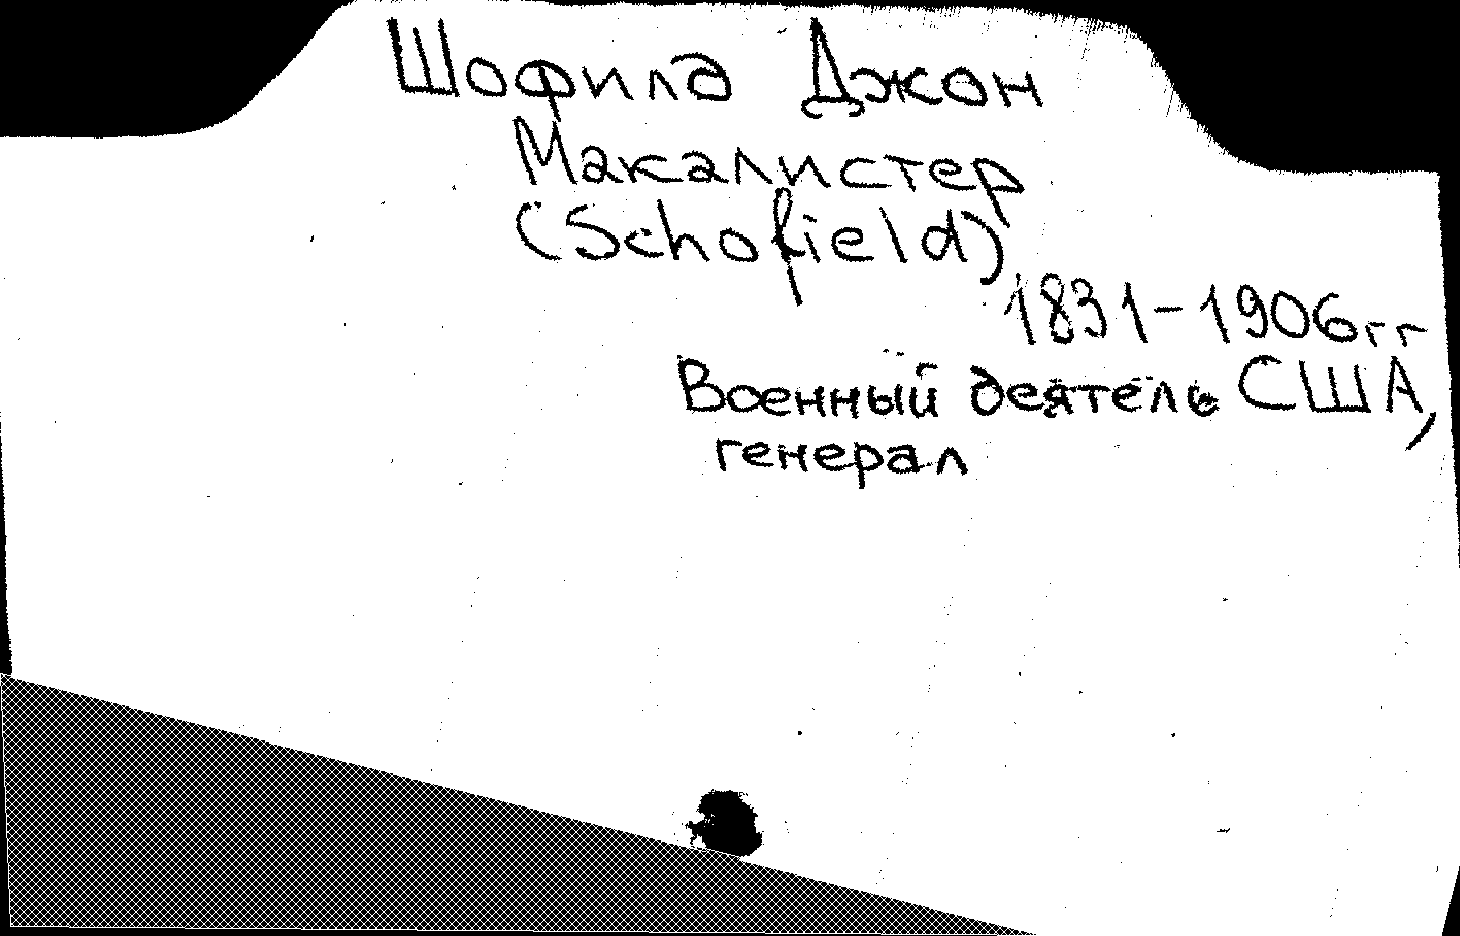 Шофилд Джон
Макалистер
(Schofield)
1831-1906гг
Военный деятель США,
генерал